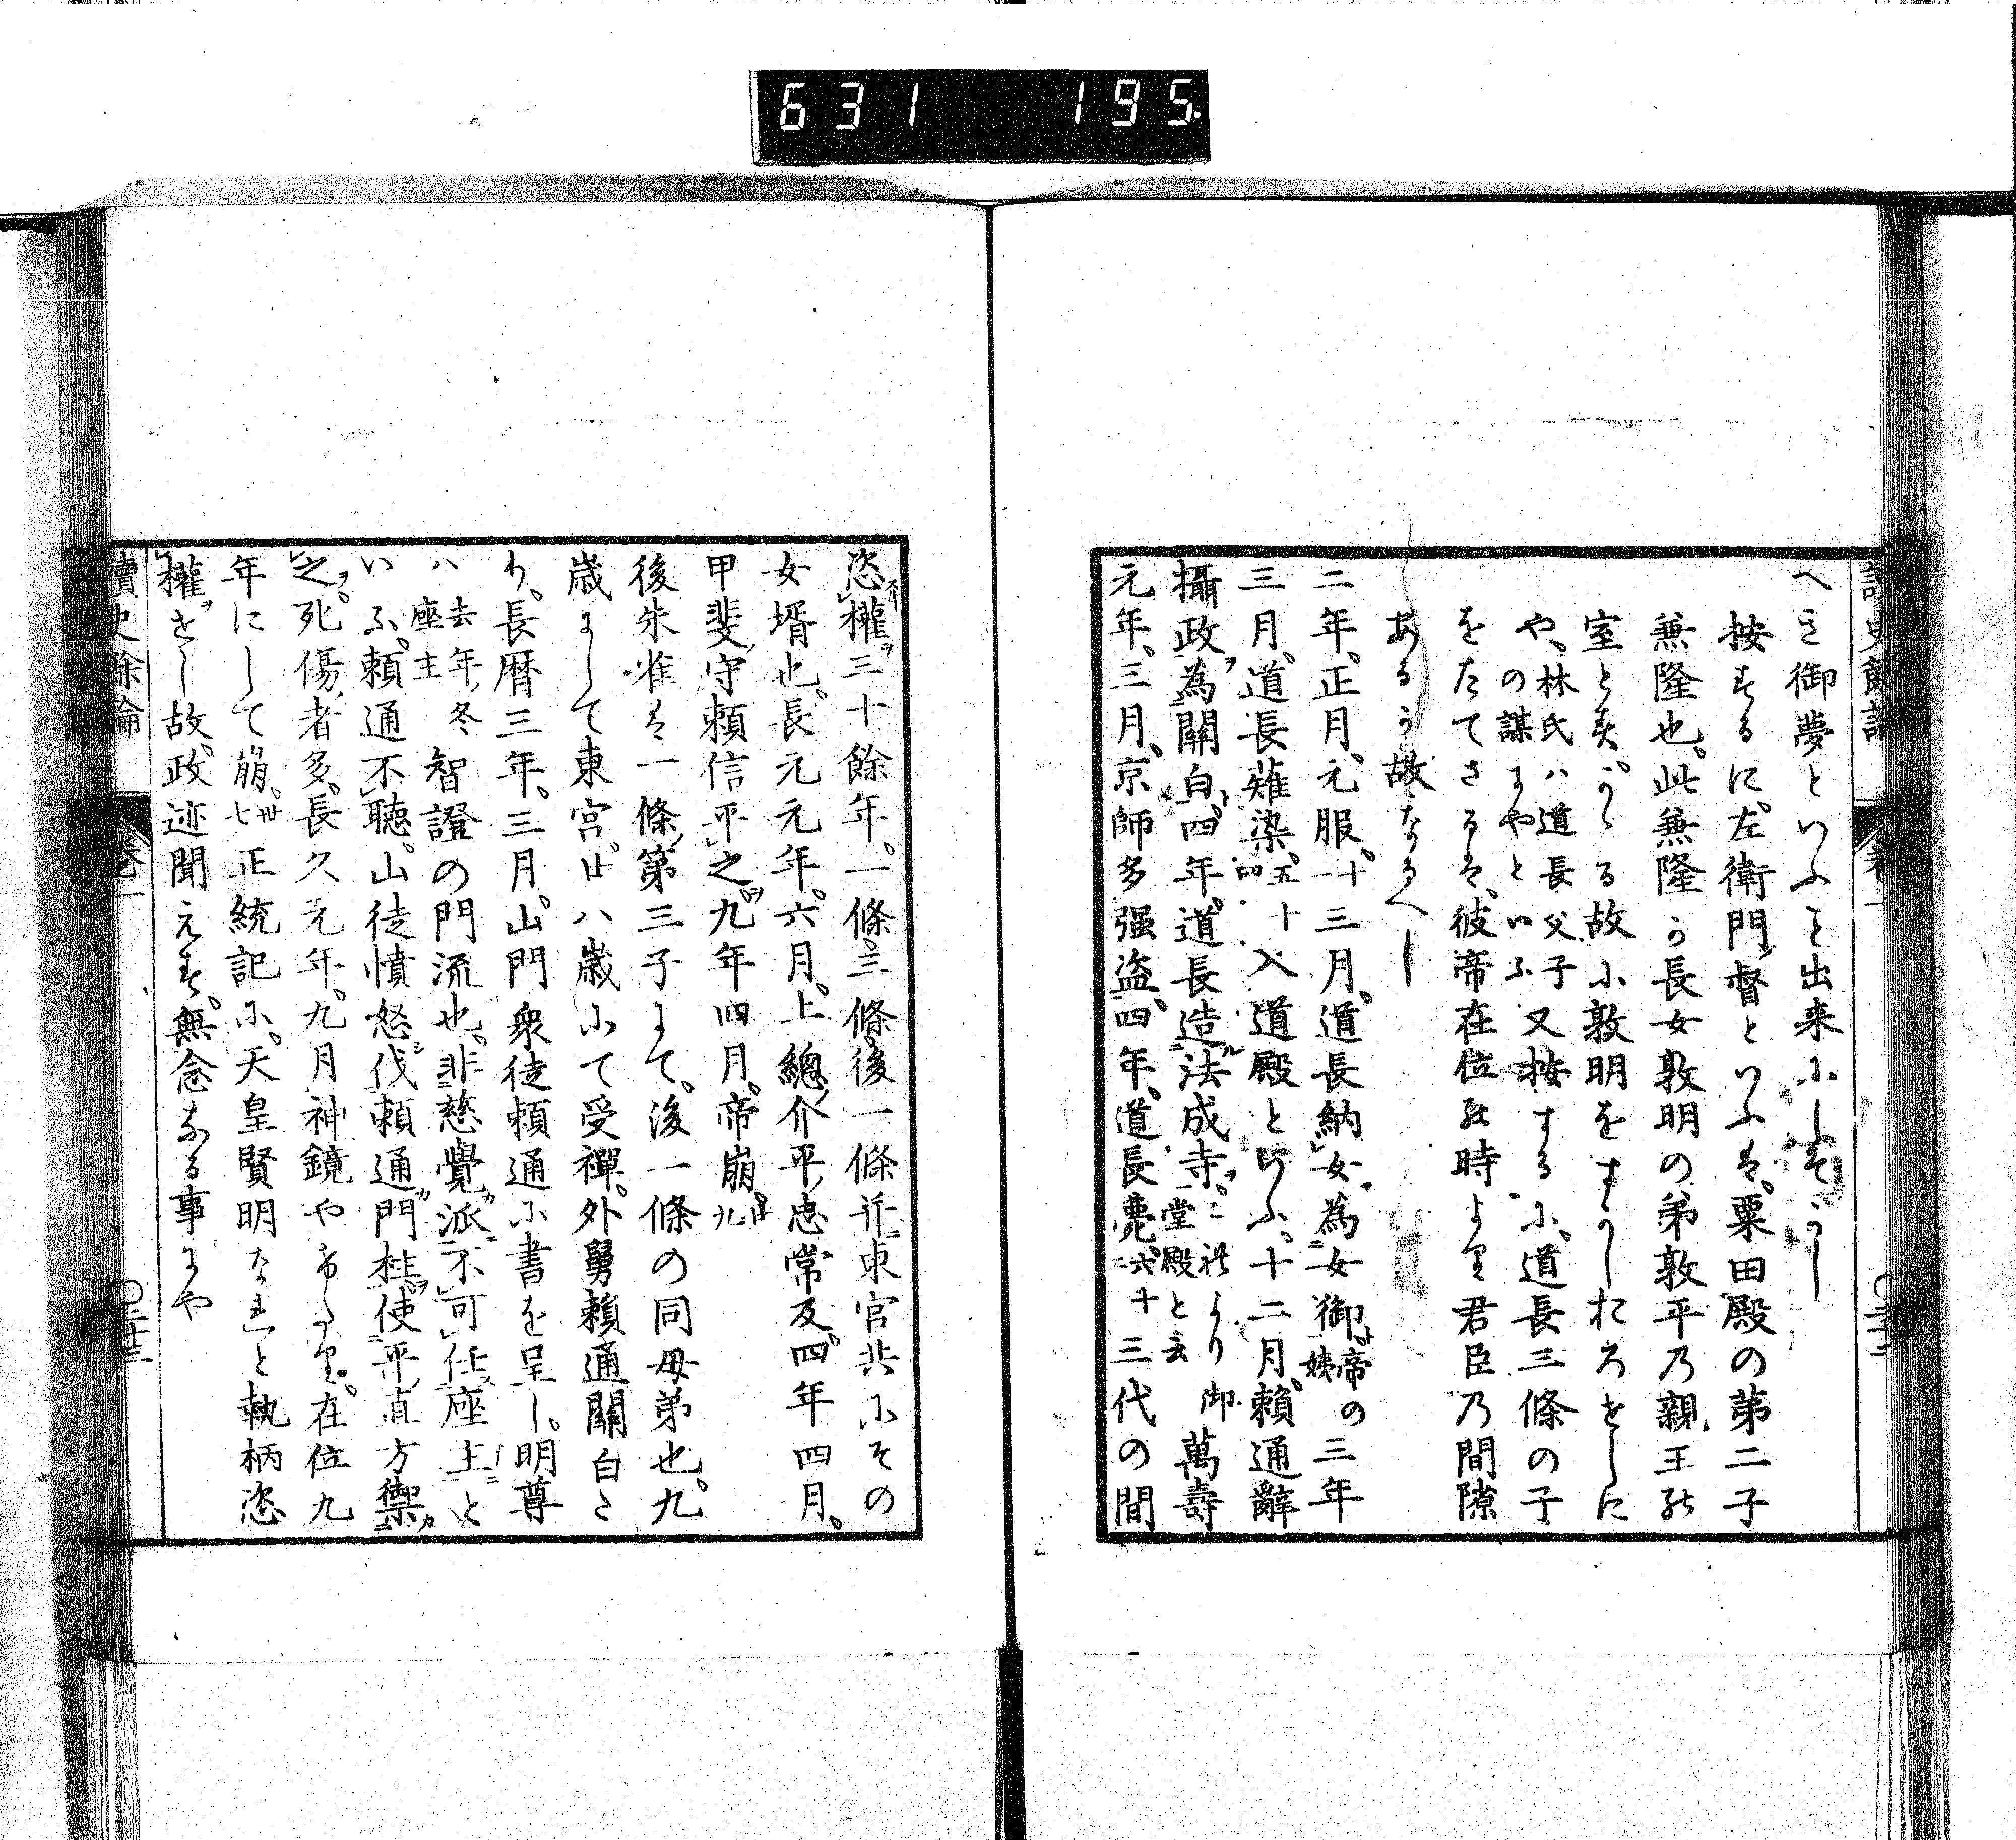 631 195
へき御夢といふこと出来にしそかし
按するに左衛門督といふは粟田殿の第二子
兼隆也此兼隆か長女敦明の弟敦平乃親王の
室とす、かゝる故に敦明をすかしおろをしに
や、林氏ハ道長父子の謀にやといふ又按するに道長三條の子
をたてさるは彼帝在位の時より君臣乃間隙
あるか故なるへし
二年正月元服十一三月道長納女為女御帝の姨三年
三月道長薙染五十四入道殿といふ十二月頼通辭
攝政為關白四年道長造法成寺これより御堂殿と云萬壽
元年三月京師多强盗四年道長薨六十二三代の間
恣權三十餘年一條三條後一條并東宮共にその
女壻也長元元年六月上總介平忠常反四年四月
甲斐守頼信平之九年四月帝崩廿九
後朱雀は一條第三子にて後一條の同母弟也九
歳にして東宮廿八歳にて受禪外舅頼通關白た
り長暦三年三月山門衆徒頼通に書を呈し明尊
ハ去年冬座主智證の門流也非慈覺派不可任座主と
いふ頼通不聽山徒憤怒伐頼通門柱使平直方禦
之死傷者多長久元年九月神鏡やけたり在位九
年にして崩卅七正統記に天皇賢明なれと執柄恣
權をし故政迹聞えす無念なる事にや
讀史餘論 卷一